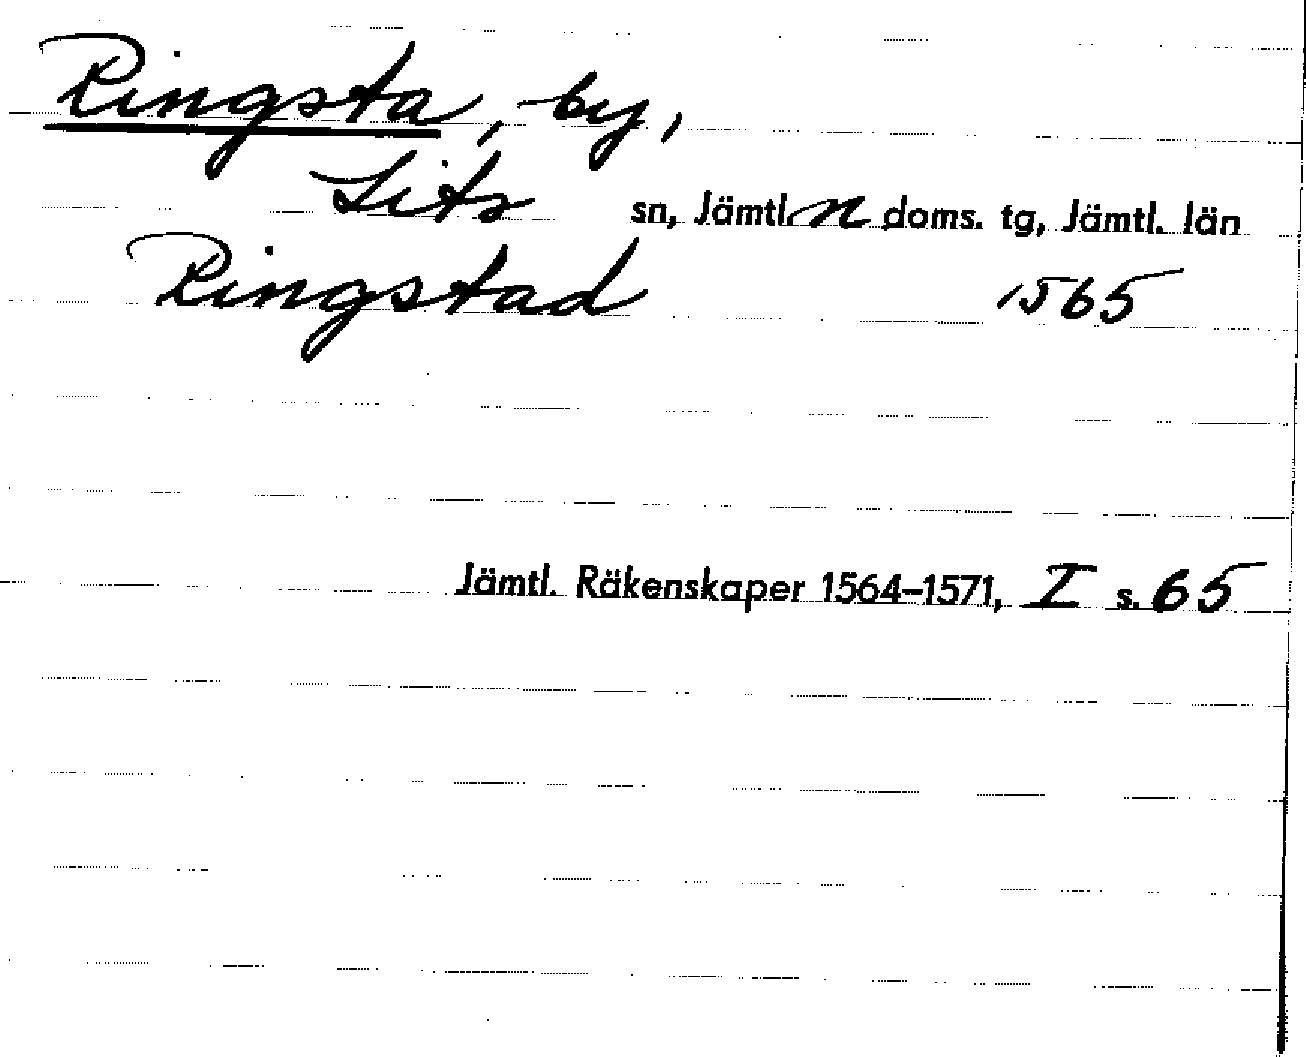 Ringsta, by,
Lits sn, Jämtl. n doms. tg, Jämtl. län
Ringstad 1565
Jämtl. Räkenskaper 1564–1571, I s. 65